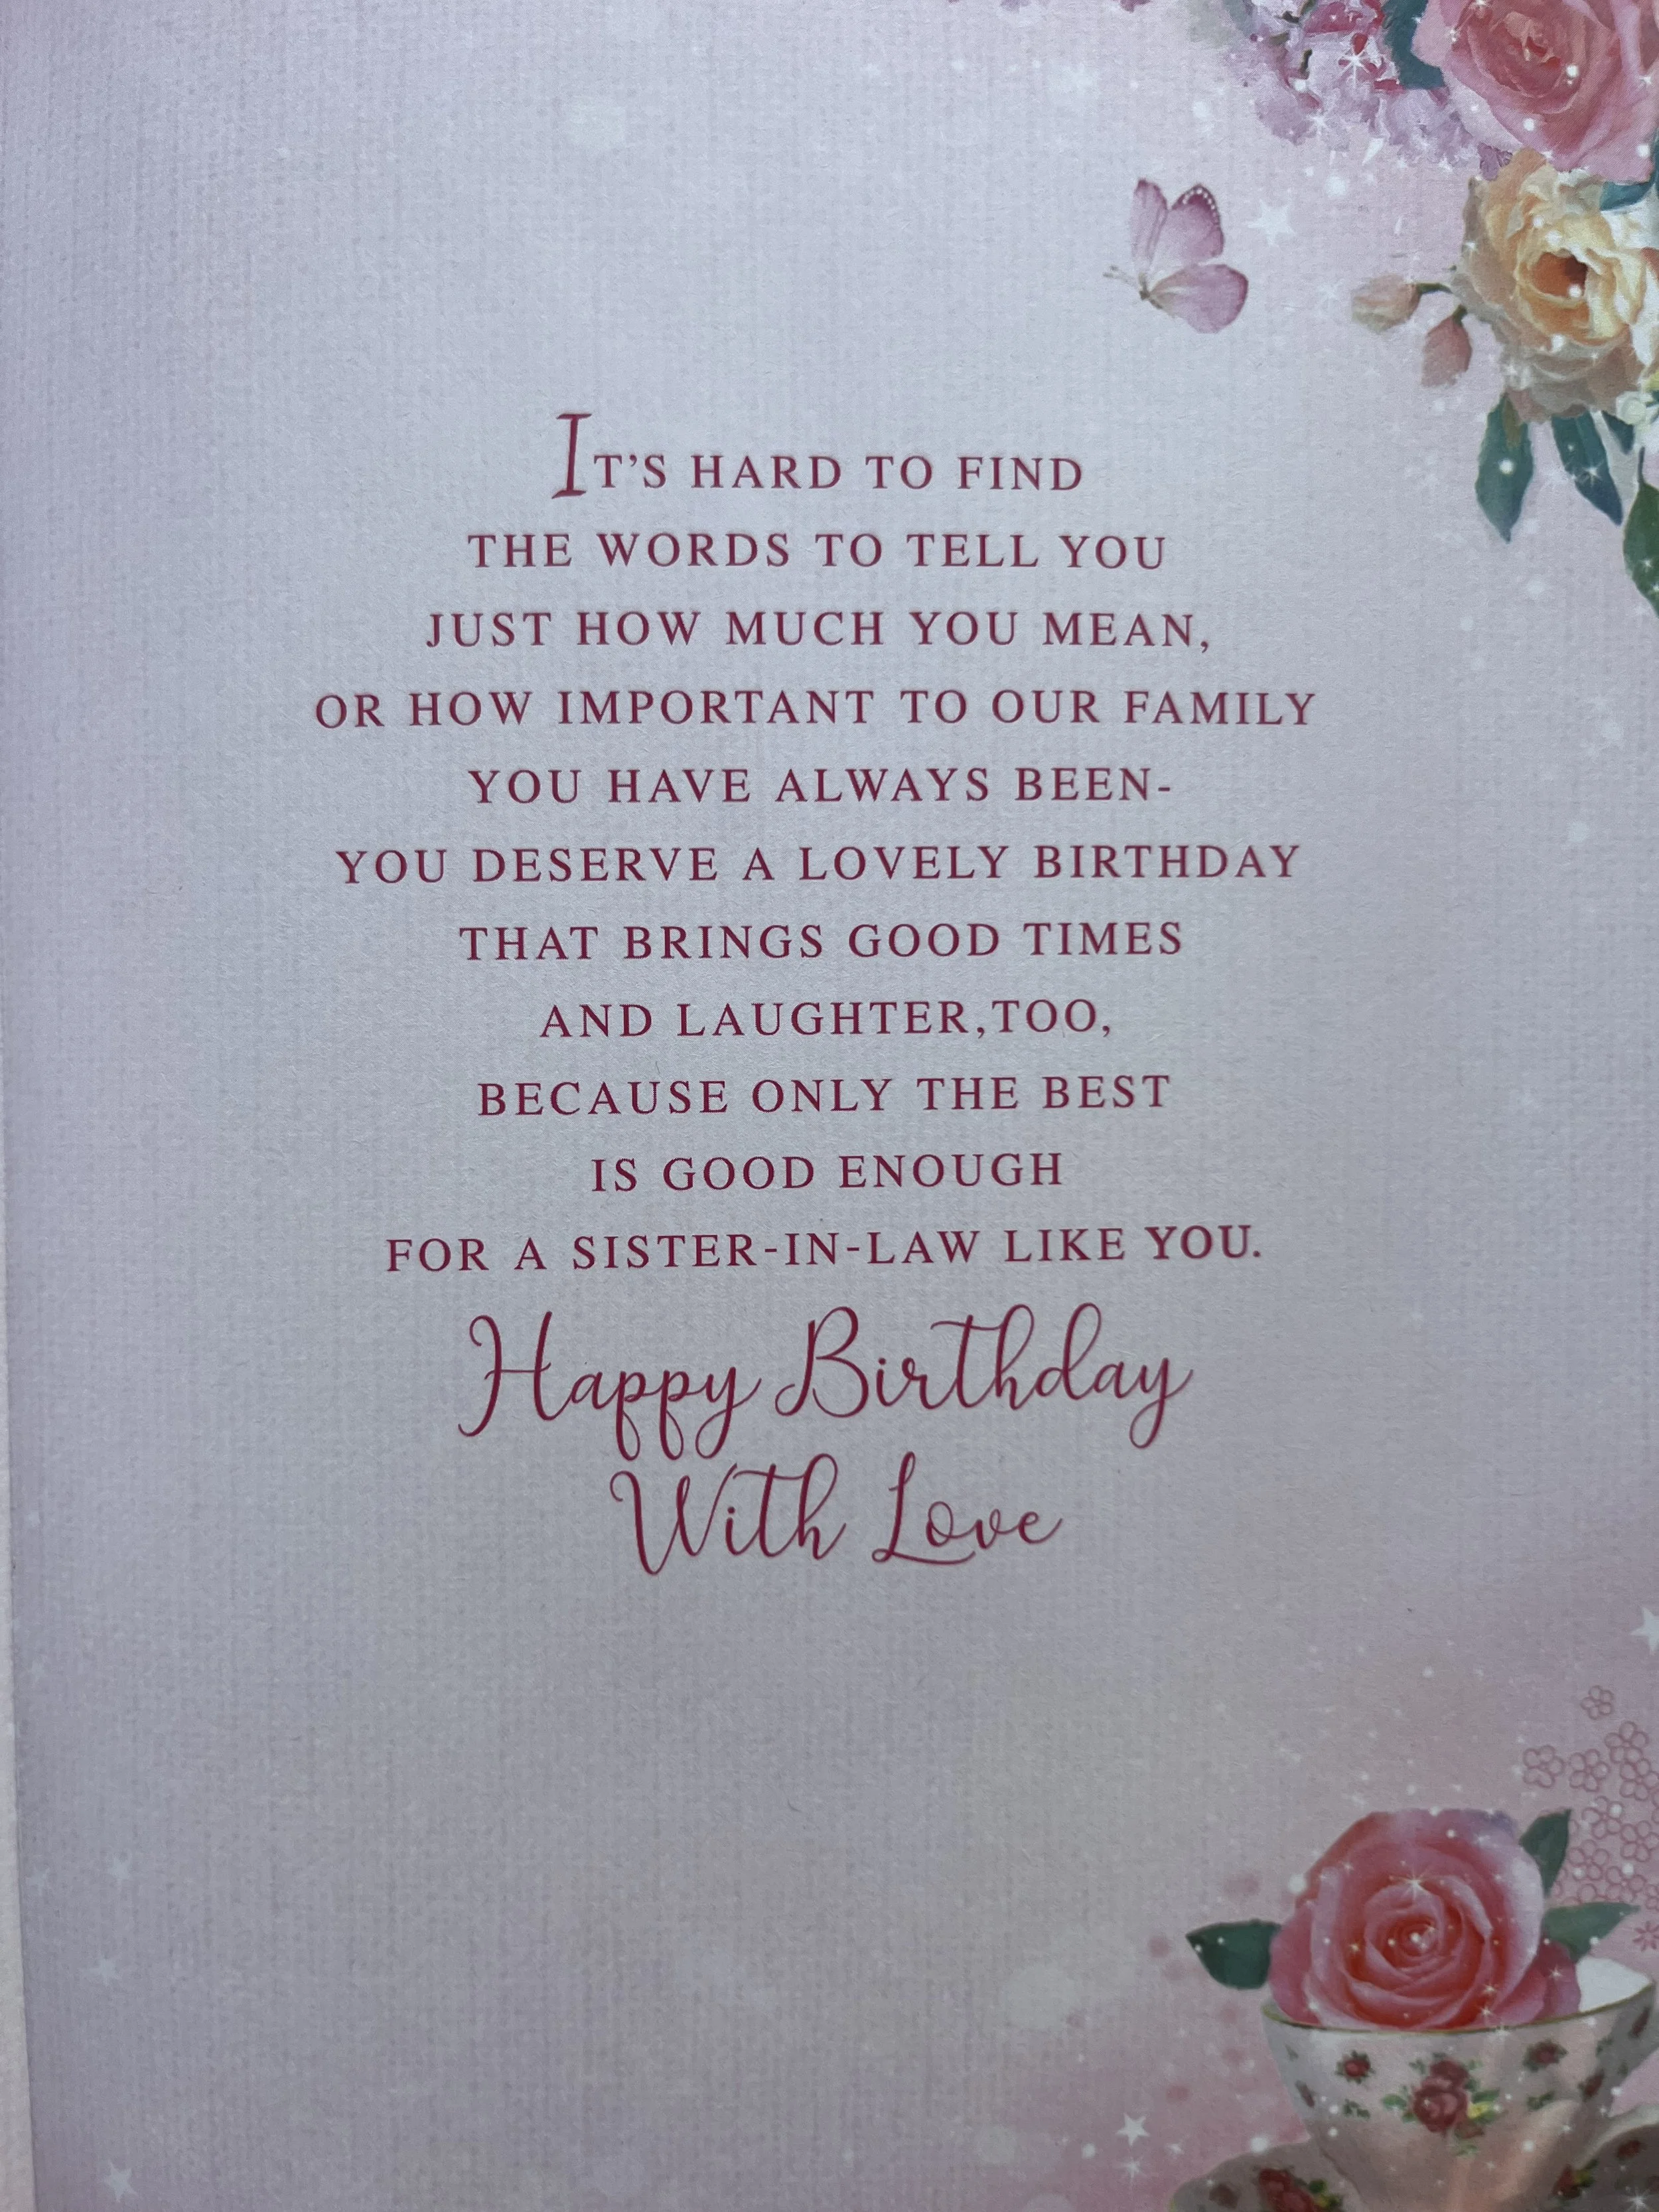 IT'S HARD TO FIND
THE WORDS TO TELL YOU
JUST HOW MUCH YOU MEAN,
OR HOW IMPORTANT TO OUR FAMILY
YOU HAVE ALWAYS BEEN-
YOU DESERVE A LOVELY BIRTHDAY
THAT BRINGS GOOD TIMES
AND LAUGHTER,TOO,
BECAUSE ONLY THE BEST
IS GOOD ENOUGH
FOR A SISTER-IN-LAW LIKE YOU.
Happy Birthday
With Love